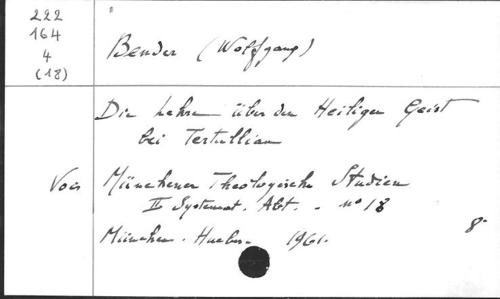 222
164
4
(18)
Bender (Wolfgang)
Die Lehre über den Heiligen Geist
bei Tertullian
Voir Münchener Theologische Studien
II Systemat. Abt. - no 18
8°
München. Hueber. 1961.